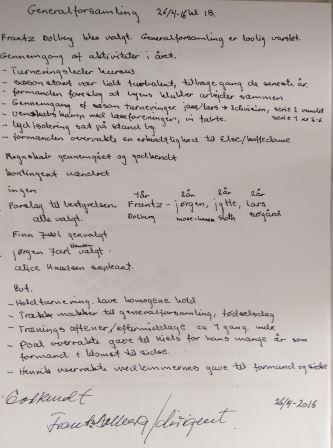 Generalforsamling 26/4-16 kl 18.
Frantz Dolberg blev valgt. Generalforsamling er lovlig varslet.
Gennemgang af aktiviteter i året.
- Turneringsleder kursus
- sæson start var lidt turbulent, tilbagegang de seneste år.
- formanden foreslog at byens klubber arbejder sammen
- Gennemgang af sæson turneringer jose/lars → serie 2 vundet
- venskabskamp med læseforeningen, vi tabte. serie 1 nr
- lydisolering sat på stand by.
- formanden overrakte en erkendtlighed til Else/kaffedame
Regnskab gennemgået og godkendt
kontingent uændret
ingen
Forslag til bestyrelsen. Frantz - jørgen, jytte, lars
4år 2år 2år 2år
alle valgt. Dolberg sloth
Finn Juhl genvalgt
jørgen Jarl valgt
alice Knudsen suppleant.
Evt.
- Holdturnering. lave homogene hold
- Trække makker til generalforsamling, fødselsdag
- Trænings aftener/eftermiddage ca 4 gang. mdr.
- Poul overrakte gave til Niels for hans mange år som
formand + blomst til
- Henrik overrakte medlemmernes gave til formand og
Godkendt
Frantz Dolberg/dirigent. 26/4-2016